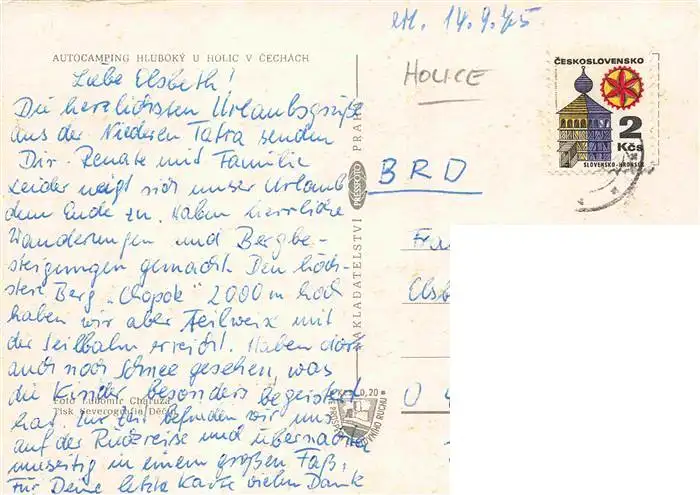 14.9.75
AUTOCAMPING HLUBOKÝ U HOLIC V ČECHÁCH
HOLICE
ČESKOSLOVENSKO
2
Kčs
SLOVENSKO-HRONSEK
Liebe Elsbeth!
Die herzlichsten Urlaubsgrüße
aus der Niederen Tatra senden
Dir Renate und Familie
Leider neigt sich unser Urlaub
dem Ende zu. Haben herrliche
Wanderungen und Bergbe-
steigungen gemacht. Den höch-
sten Berg „Chopok“ 2000 m hoch
haben wir aber teilweise mit
der Seilbahn erreicht. Haben dort
auch noch Schnee gesehen, was
die Kinder besonders begeistert
hat. Zur Zeit befinden wir uns
auf der Rückreise und übernachten
in einem großen Faß.
Für Deine letzte Karte vielen Dank
Foto Lubomír
Tisk Severografia Děčín
NAKLADATELSTVÍ PRESSFOTO PRAHA
0,20
BRD
Fra
Elsb